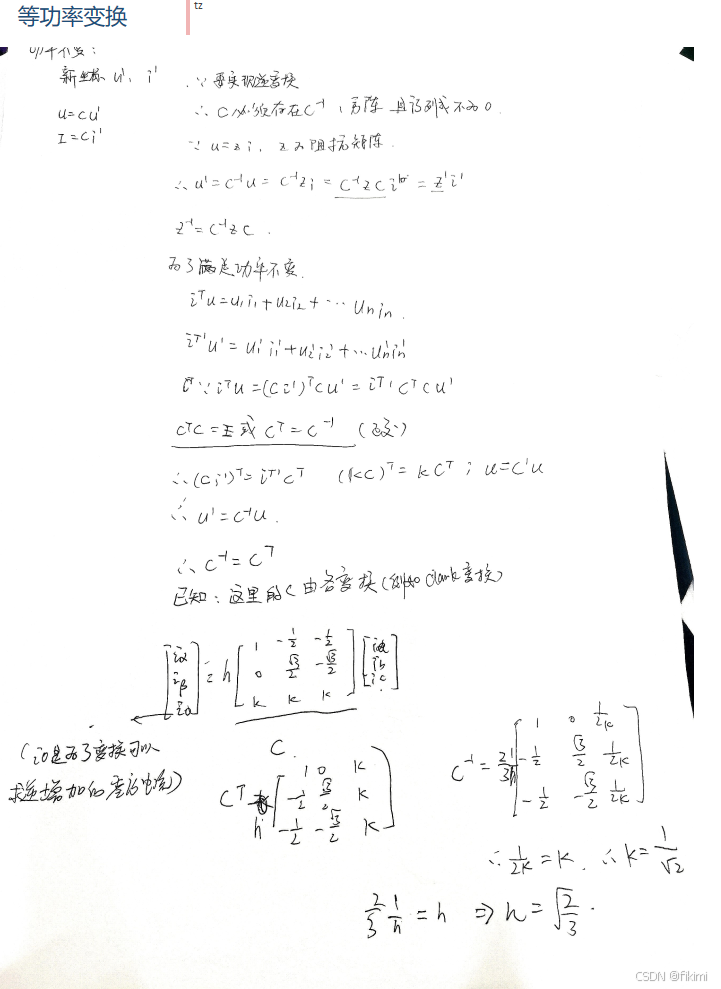 等功率变换
tz
功率不变:
新坐标 u' 、 i' ∵ 要实现逆变换
u=cu' ∴ C必须存在C⁻¹, 方阵 且行列式不为0.
I=Ci' ∵ u=zi, z为阻抗矩阵.
∴ u'=c⁻¹u= c⁻¹zi = C⁻¹zCi' = z'i'
z⁻¹=c⁻¹zc.
为了满足功率不变.
iᵀu=u₁i₁+u₂i₂+…Unin.
iᵀ'u'=u₁'i₁'+u₂'i₂'+…Un'in'
∵ iᵀu=(Ci')ᵀCu'=iᵀ'CᵀCu'
CᵀC=E 或 Cᵀ=C⁻¹ (正交)
∴(Ci')ᵀ=iᵀ'Cᵀ (KC)ᵀ=KCᵀ; u=C'u
∴ u'=C⁻¹u.
∴ C⁻¹=Cᵀ
已知:这里的C由各变换(例如Clark变换)
[iα iβ i0] = h [1 -1/2 -1/2; 0 √3/2 -√3/2; K K K] [ia ib ic]
C
(i0是为了变换可以
求逆增加的零序电流)
Cᵀ h [1 0 K; -1/2 √3/2 K; -1/2 -√3/2 K]
C⁻¹ = 2/3 1/h [1 0 1/2K; -1/2 √3/2 1/2K; -1/2 -√3/2 1/2K]
∴ 1/2K=K. ∴K=1/√2
2/3 1/h =h ⇒ h=√2/3.
CSDN @fikimi